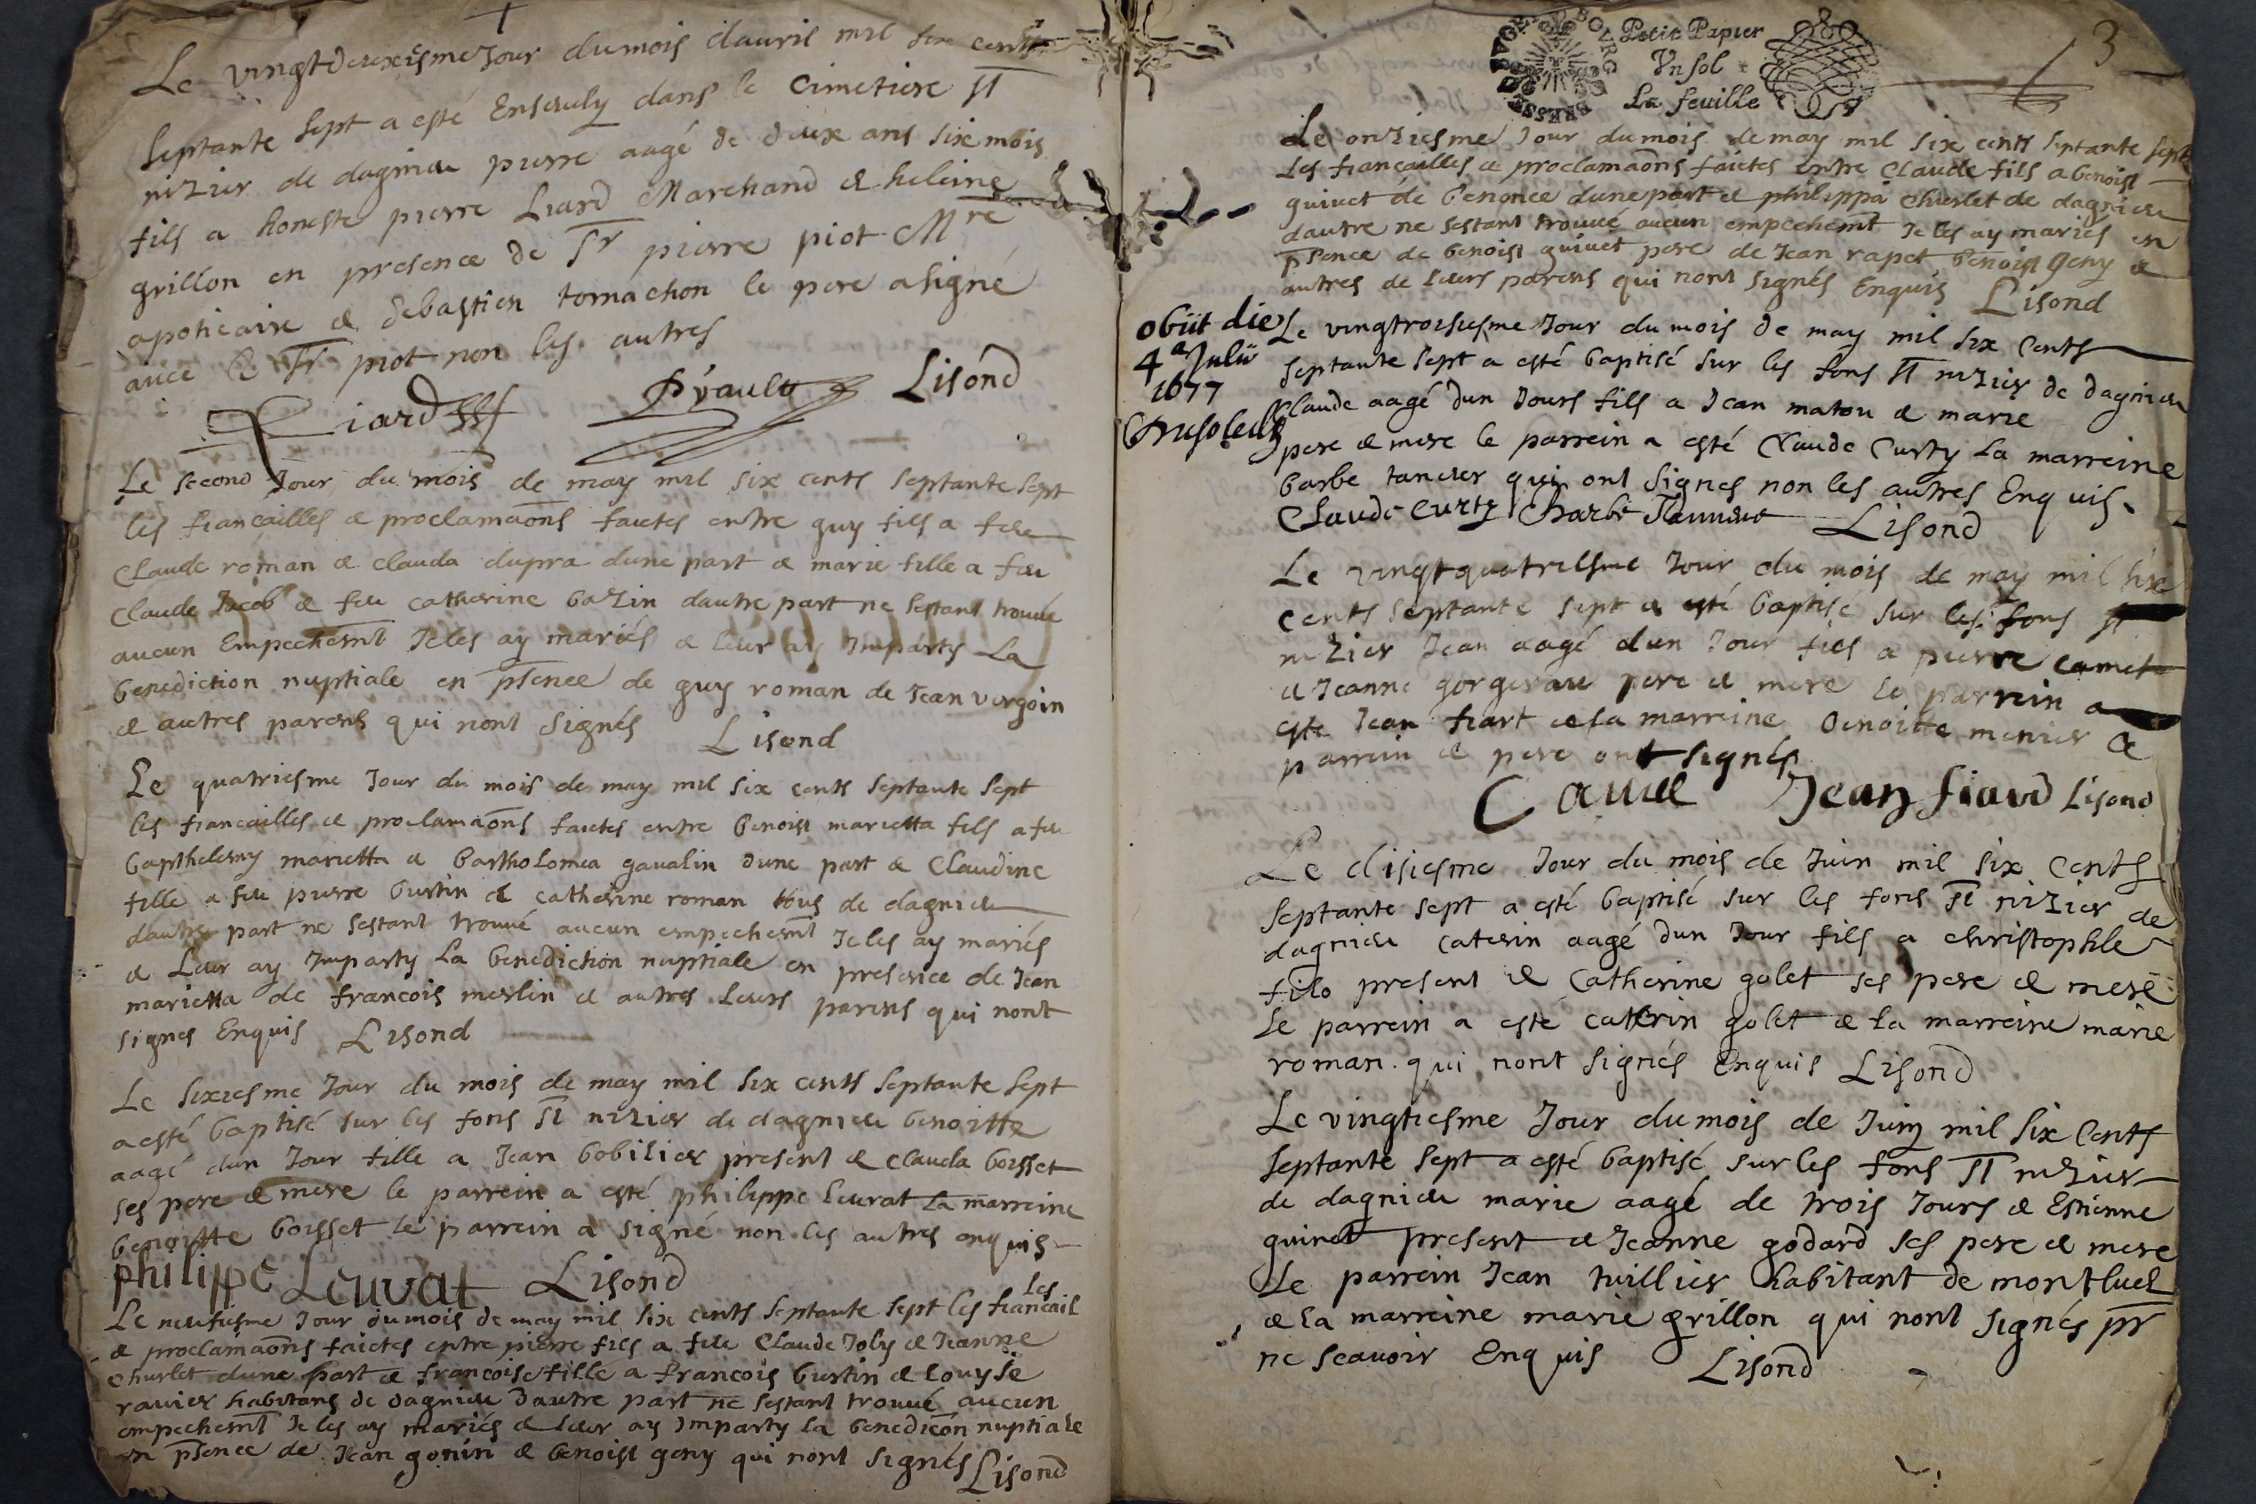 Le vingtdeuxiesme Jour dumois dauris mil six cents
septante sept a esté Ensevely dans le cimetiere st
nizier de dagnieu pierre aagé de deux ans six mois
fils a honeste pierre Liard Marchand & heleine
grillon en presence de sr pierre piot Mre
apoticaire & sebastien tomachon le pere a signé
avec le sr piot non les autres
Liard Lisond
Le second Jour du mois de may mil six cents septante sept
les fiancailles & proclamaons faictes entre guy fils a feu
Claude roman & clauda dupra dune part & marie fille a feu
Claude Jacob & feu catherine bazin dautre part ne sestant trouvé
aucun Empechemt Je les ay mariés & leur ay Imparty La
benediction nuptiale en psence de guy roman de Jean vergoin
& autres parens qui nont signés Lisond
Le quatriesme Jour du mois de may mil six cents septante sept
les fiancailles & proclamaons faictes entre benoist marietta fils a feu
bapthelemy marietta & bartholomea gavalin dune part & Claudine
fille a feu pierre burtin & catherine roman tous de dagnieu
dautre part ne sestant trouvé aucun empechemt Je les ay mariés
& Leur ay Imparty La benediction nuptiale en presence de Jean
marietta de francois merlin & autres leurs parens qui nont
signes Enquis Lisond
Le sixiesme Jour du mois de may mil six cents septante sept
a esté baptisé sur les fons st nizier de dagnieu benoitte
aagé dun Jour fille a Jean bobilier present & Clauda boisset
ses pere & mere le parrein a esté philippe leurat La marreine
benoitte boisset le parrein a signé non les autres enquis
philippe Leuvat Lisond
Le neufiesme Jour dumois de may mil six cents septante sept les fiancail
les
& proclamaons faictes entre pierre fils a feu Claude Joly & Jeanne
Churlet dune part & francoise fille a francois burtin & Louyse
ravier habitans de dagnieu dautre part ne sestant trouvé aucun
empechemt Je les ay mariés & leur ay Imparty la benedicon nuptiale
en psence de Jean gonin & benoist geny qui nont signés Lisond
Petit Papier
Vn sol
La feuille
3
Le onziesme Jour dumois de may mil six cents septante sept
Les fiancailles & proclamaons faictes entre Claude fils a benoist
guivet de benonce dune part & philippa Churlet de dagnieu
dautre ne sestant trouvé aucun empechemt Je les ay mariés en
psence de benoist guivet pere de Jean rapet benoist geny &
autres de leurs parens qui nont signés Enquis Lisond
obiit die
4a Julii
1677
Le vingtroisiesme Jour du mois de may mil six cents
septante sept a esté baptisé sur les fons st nizier de dagnieu
Claude aagé dun Jours fils a Jean maton & marie
pere & mere le parrein a esté Claude Curty La marreine
barbe tanvier qui ont signes non les autres Enquis
Claude Curty Lisond
Le vingtquatriesme Jour du mois de may mil six
cents septante sept a esté baptisé sur les fons st
nizier Jean aagé dun Jour fils a pierre
& Jeanne gorgerau pere & mere le parrein a
esté Jean fiart & la marreine benoitte menier &
parrein & pere ont signés
Jean fiard Lisond
Le disiesme Jour du mois de Juin mil six cents
septante sept a esté baptisé sur les fons st nizier de
dagnieu caterin aagé dun Jour fils a christophle
filo present & Catherine golet ses pere & mere
Le parrein a esté caterin golet & la marreine marie
roman qui nont signés Enquis Lisond
Le vingtiesme Jour dumois de Juin mil six cents
septante sept a esté baptisé sur les fons st nizier
de dagnieu marie aagé de trois Jours & Estienne
guinet present & Jeanne godard ses pere & mere
Le parrein Jean tuillier habitant de montluel
& la marreine marie grillon qui nont signés pr
ne scavoir Enquis Lisond